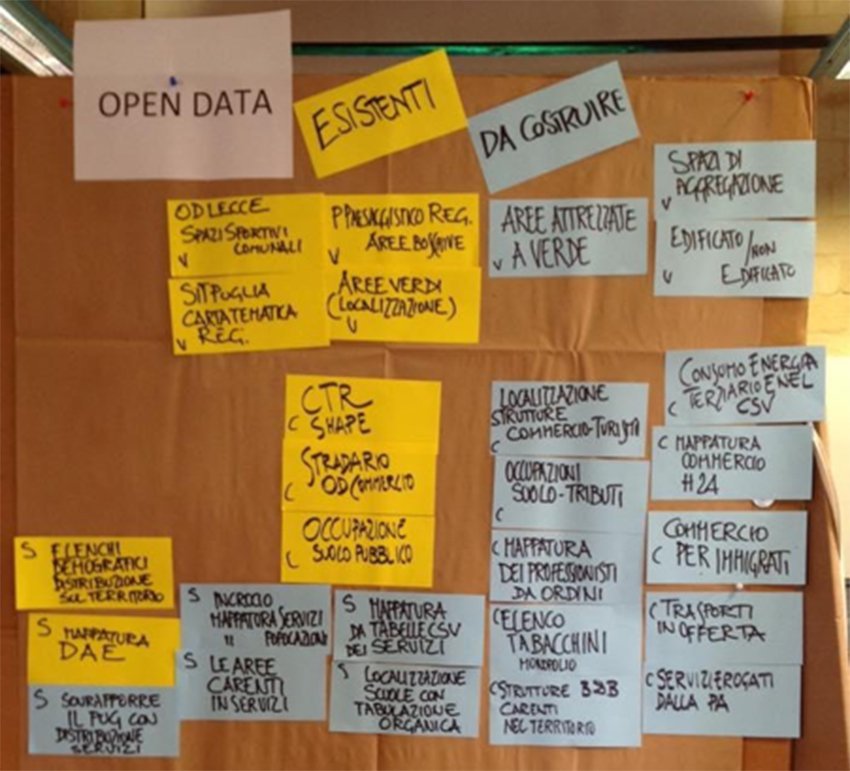 OPEN DATA
ESISTENTI
DA COSTRUIRE
OD LECCE
SPAZI SPORTIVI
COMUNALI
V
SIT PUGLIA
CARTA TEMATICA
V REG.
PPAESAGGISTICO REG.
V AREE BOSCHIVE
AREE VERDI
(LOCALIZZAZIONE)
V
AREE ATTREZZATE
V A VERDE
SPAZI DI
AGGREGAZIONE
V
EDIFICATO/NON
V EDIFICATO
CTR
C SHAPE
STRADARIO
C OD COMMERCIO
OCCUPAZIONE
C SUOLO PUBBLICO
LOCALIZZAZIONE
STRUTTURE
C COMMERCIO-TURISTI
OCCUPAZIONI
SUOLO-TRIBUTI
C
C MAPPATURA
DEI PROFESSIONISTI
DA ORDINI
C ELENCO
TABACCHINI
MONOPOLIO
C STRUTTURE B&B
CARENTI
NEL TERRITORIO
CONSUMO ENERGIA
TERZIARIO ENEL
C CSV
C MAPPATURA
COMMERCIO
H24
COMMERCIO
C PER IMMIGRATI
C TRASPORTI
IN OFFERTA
C SERVIZI EROGATI
DALLA PA
S ELENCHI
DEMOGRAFICI
DISTRIBUZIONE
SUL TERRITORIO
S MAPPATURA
DAE
S SOVRAPPORRE
IL PUG CON
DISTRIBUZIONE
SERVIZI
S INCROCIO
MAPPATURA SERVIZI
" POPOLAZIONE
S LE AREE
CARENTI
IN SERVIZI
S MAPPATURA
DA TABELLE CSV
DEI SERVIZI
S LOCALIZZAZIONE
SCUOLE CON
TABULAZIONE
ORGANICA